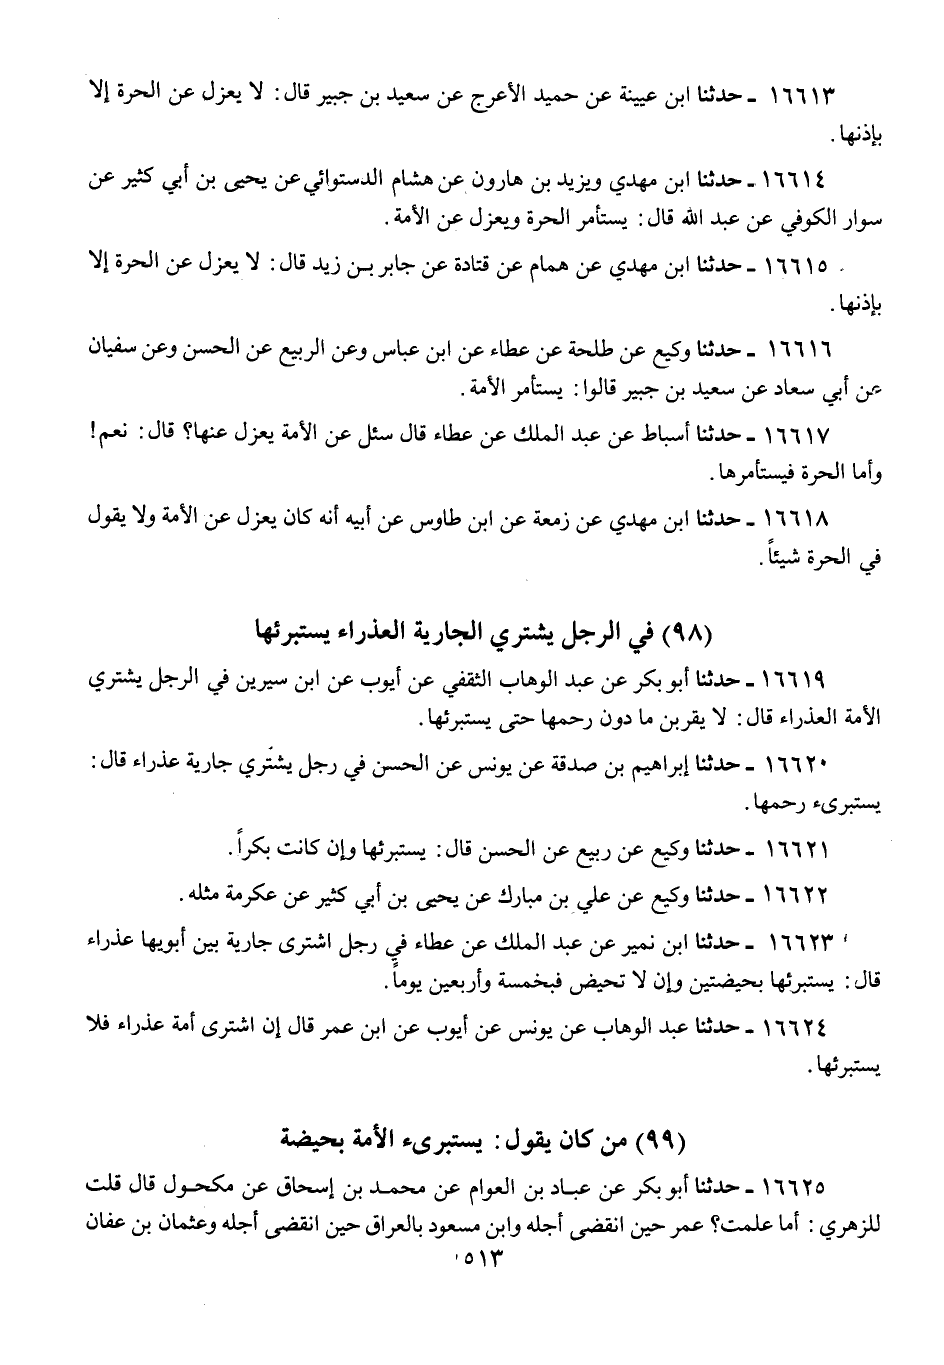 ١٦٦١٣ ـ حدثنا ابن عيينة عن حميد الأعرج عن سعيد بن جبير قال: لا يعزل عن الحرة إلا
بإذنها.
١٦٦١٤ ـ حدثنا ابن مهدي ويزيد بن هارون عن هشام الدستوائي عن يحيى بن أبي كثير عن
سوار الكوفي عن عبد الله قال: يستأمر الحرة ويعزل عن الأمة.
١٦٦١٥ ـ حدثنا ابن مهدي عن همام عن قتادة عن جابر بـن زيد قال: لا يعزل عن الحرة إلا
بإذنها.
١٦٦١٦ ـ حدثنا وكيع عن طلحة عن عطاء عن ابن عباس وعن الربيع عن الحسن وعن سفيان
عن أبي سعاد عن سعيد بن جبير قالوا: يستأمر الأمة.
١٦٦١٧ ـ حدثنا أسباط عن عبد الملك عن عطاء قال سئل عن الأمة يعزل عنها؟ قال: نعم!
وأما الحرة فيستأمرها.
١٦٦١٨ ـ حدثنا ابن مهدي عن زمعة عن ابن طاوس عن أبيه أنه كان يعزل عن الأمة ولا يقول
في الحرة شيئاً.
(٩٨) في الرجل يشتري الجارية العذراء يستبرئها
١٦٦١٩ ـ حدثنا أبو بكر عن عبد الوهاب الثقفي عن أيوب عن ابن سيرين في الرجل يشتري
الأمة العذراء قال: لا يقربن ما دون رحمها حتى يستبرئها.
١٦٦٢٠ ـ حدثنا إبراهيم بن صدقة عن يونس عن الحسن في رجل يشتري جارية عذراء قال:
يستبرىء رحمها.
١٦٦٢١ ـ حدثنا وكيع عن ربيع عن الحسن قال: يستبرئها وإن كانت بكراً.
١٦٦٢٢ ـ حدثنا وكيع عن علي بن مبارك عن يحيى بن أبي كثير عن عكرمة مثله.
١٦٦٢٣ ـ حدثنا ابن نمير عن عبد الملك عن عطاء في رجل اشترى جارية بين أبويها عذراء
قال: يستبرئها بحيضتين وإن لا تحيض فبخمسة وأربعين يوماً.
١٦٦٢٤ ـ حدثنا عبد الوهاب عن يونس عن أيوب عن ابن عمر قال إن اشترى أمة عذراء فلا
يستبرئها.
(٩٩) من كان يقول: يستبرىء الأمة بحيضة
١٦٦٢٥ ـ حدثنا أبو بكر عن عبـاد بن العوام عن محمـد بن إسحاق عن مكحـول قال قلت
للزهري: أما علمت؟ عمر حين انقضى أجله وابن مسعود بالعراق حين انقضى أجله وعثمان بن عفان
٥١٣